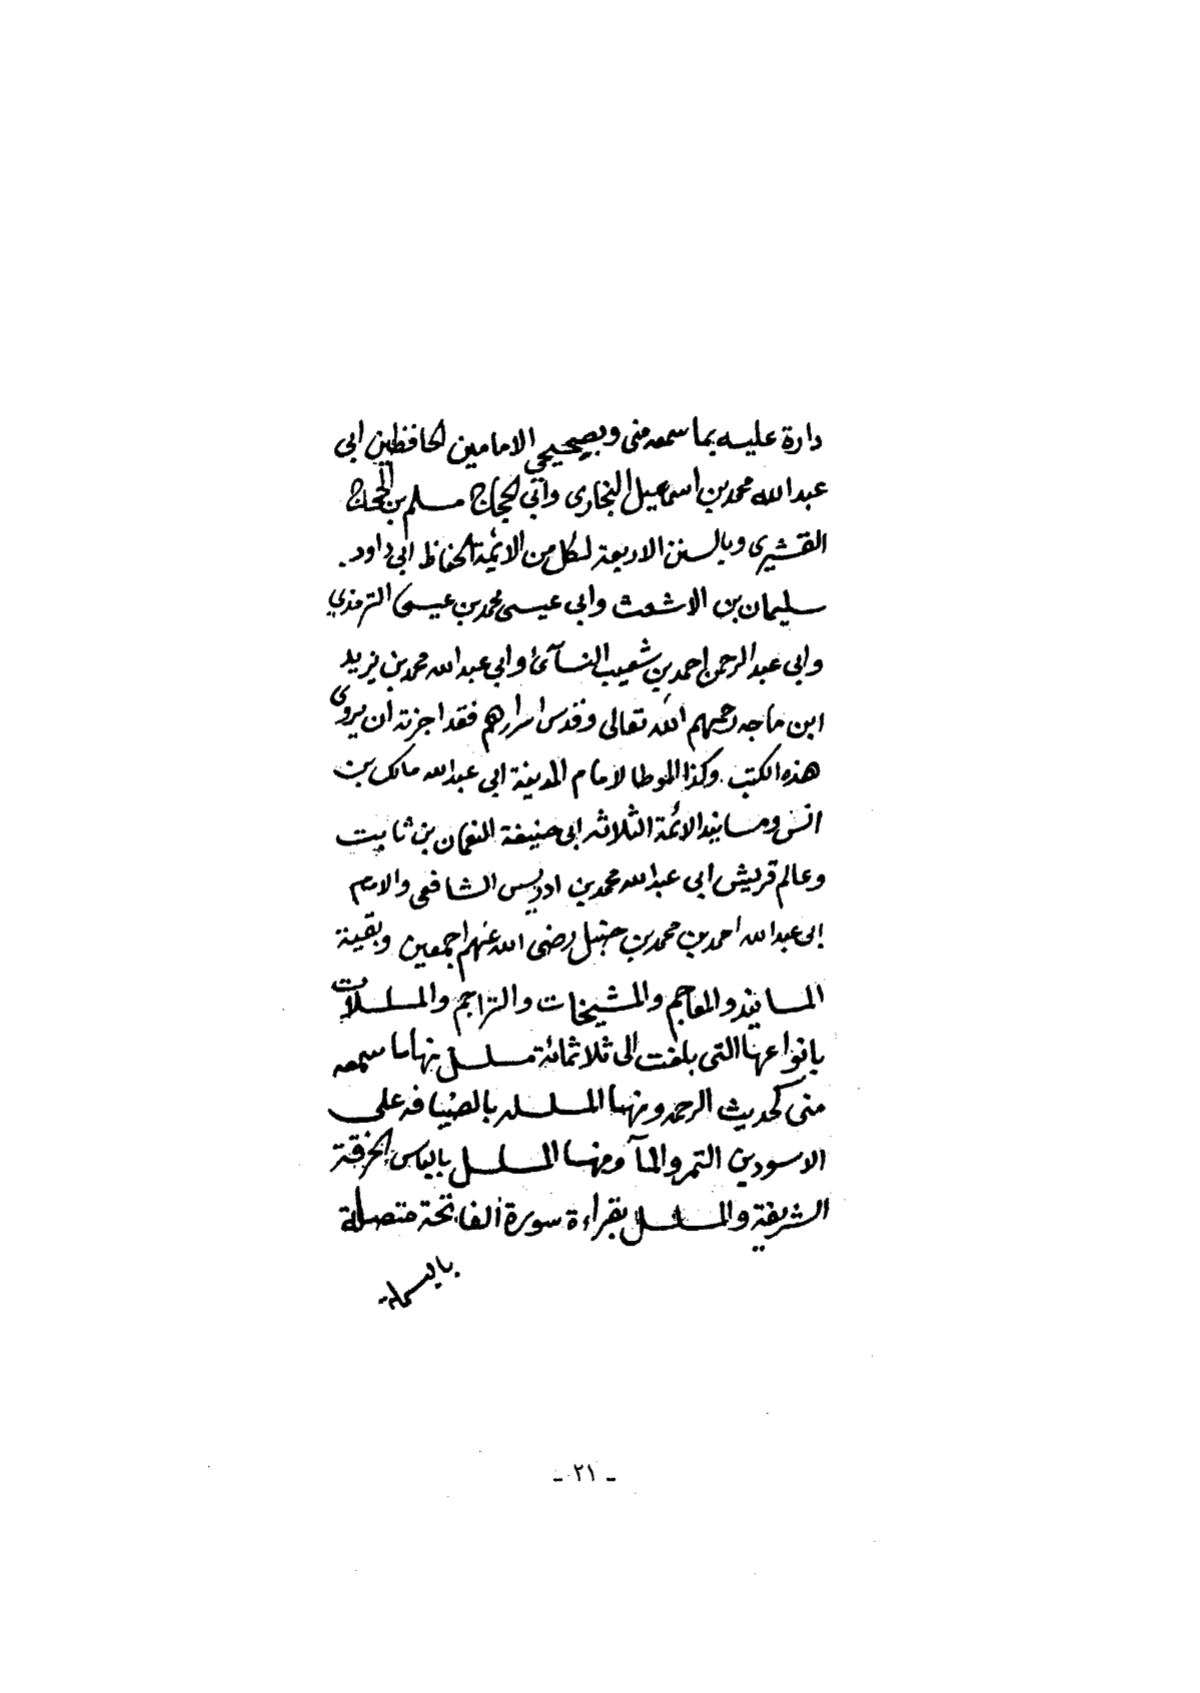 دارة عليه بما سمعه منى وبصحيحي الامامين الحافظين ابى
عبد الله محمد بن اسمعيل البخارى وابى الحجاج مسلم بن الحجاج
القشيرى وبالسنن الاربعة لكل من الائمة الحفاظ ابى داود.
سليمان بن الاشعث وابى عيسى محمد بن عيسى الترمذي
وابى عبد الرحمن احمد بن شعيب النسآئ وابى عبد الله محمد بن يزيد
ابن ماجه رحمهم الله تعالى وقدس اسرارهم فقد اجزته ان يروى
هذه الكتب وكذا الموطا لامام المدينة ابى عبد الله مالك بن
انس ومسانيد الائمة الثلاثه ابى حنيفة النعمان بن ثابت
وعالم قريش ابى عبد الله محمد بن ادريس الشافعى والامام
ابى عبد الله احمد بن محمد بن حنبل رضى الله عنهم اجمعين وبقية
المسانيد والمعاجم والمشيخات والتراجم والمسلسلات
بانواعها التى بلغت الى ثلاثمائة مسلسل منها ما سمعه
منى كحديث الرحمه ومنها المسلسل بالضيافه على
الاسودين التمر والمآ ومنها المسلسل بالباس الخرقة
الشريفة والمسلسل بقراءة سورة الفاتحة متصلة
بالبسملة
ـ ٢١ ـ